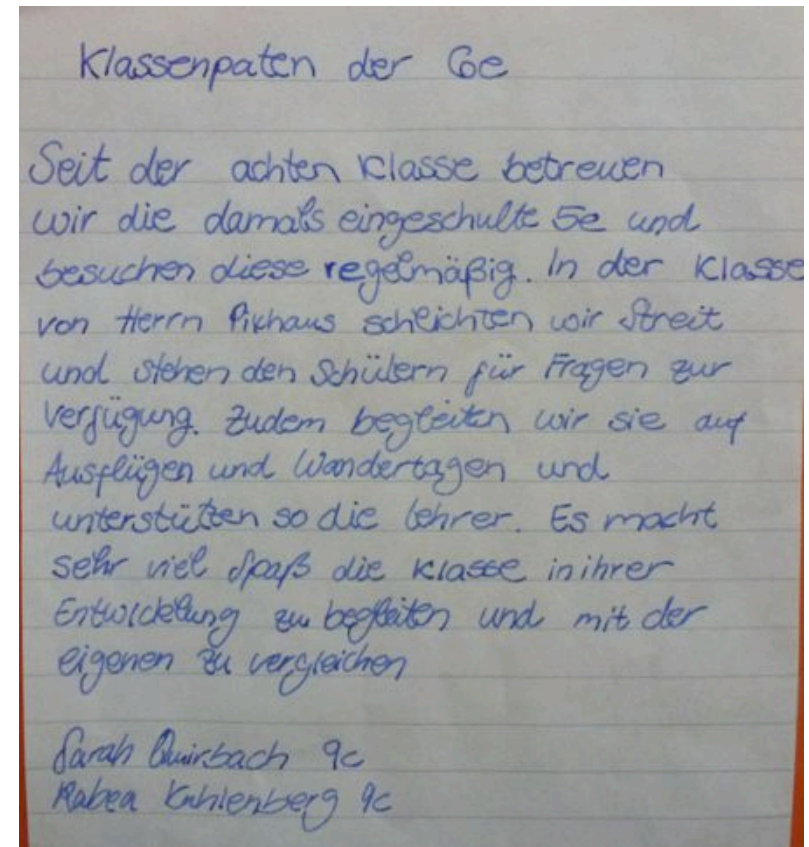 Klassenpaten der 6e
Seit der achten Klasse betreuen
wir die damals eingeschulte 5e und
besuchen diese regelmäßig. In der Klasse
von Herrn Pikhaus schlichten wir Streit
und stehen den Schülern für Fragen zur
Verfügung. Zudem begleiten wir sie auf
Ausflügen und Wandertagen und
unterstützen so die Lehrer. Es macht
sehr viel Spaß die Klasse in ihrer
Entwickelung zu begleiten und mit der
eigenen zu vergleichen
Sarah Quirbach 9c
Rabea Kuhlenberg 9c